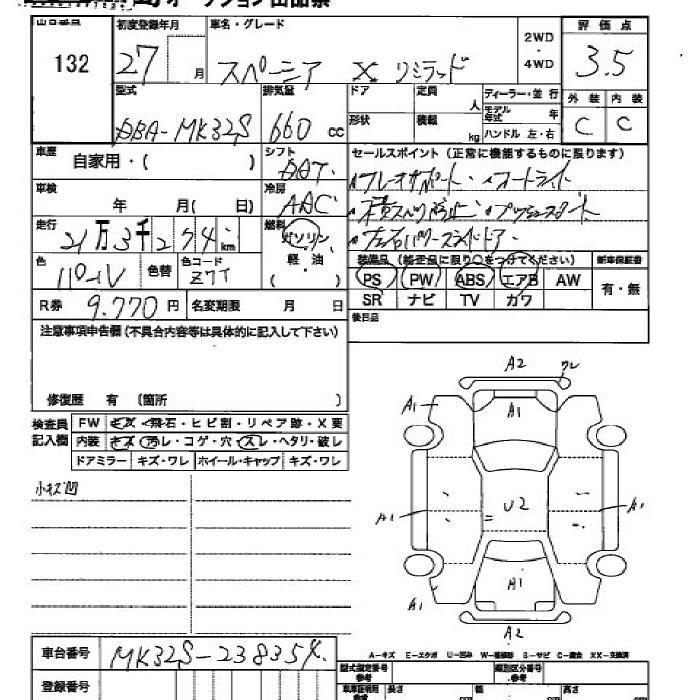 オークション出品票
出品番号 132
初度登録年月 27 月
車名・グレード スペーシア X リミテッド
2WD・4WD
評価点 3.5
外装 C 内装 C
型式 DBA-MK32S
排気量 660 cc
ドア 形状
定員 人 積載 kg
ディーラー・並行
モデル年式 年
ハンドル 左・右
車歴 自家用・( )
シフト
セールスポイント(正常に機能するものに限ります)
・ブレーキサポート ・オートライト
・横スベリ防止 ・プッシュスタート
・左右パワースライドドア
車検 年 月( 日)
冷房 AAC
走行 21万3千274 km
燃料 ガソリン・軽油 ( )
色 色替 色コード Z7T
装備品(純正品に限り○をつけてください) 新車保証書
PS PW ABS エアB AW 有・無
SR ナビ TV カワ
R券 9.770円 名変期限 月 日
後日品
注意事項申告欄(不具合内容等は具体的に記入して下さい)
修復歴 有 (箇所 )
検査員記入欄
FW キズ・飛石・ヒビ割・リペア跡・X要
内装 キズ・汚レ・コゲ・穴・スレ・ヘタリ・破レ
ドアミラー キズ・ワレ ホイール・キャップ キズ・ワレ
小キズ凹
A2 ワレ
A1 A1
U2
A1 A1
A1
A1 A1
A2
A-キズ E-エクボ U-凹み W-補修跡 S-サビ C-腐食 XX-交換済
車台番号 MK32S-238354
型式指定番号 参考
類別区分番号 参考
登録番号
車庫証明用 参考 長さ cm 幅 cm 高さ cm